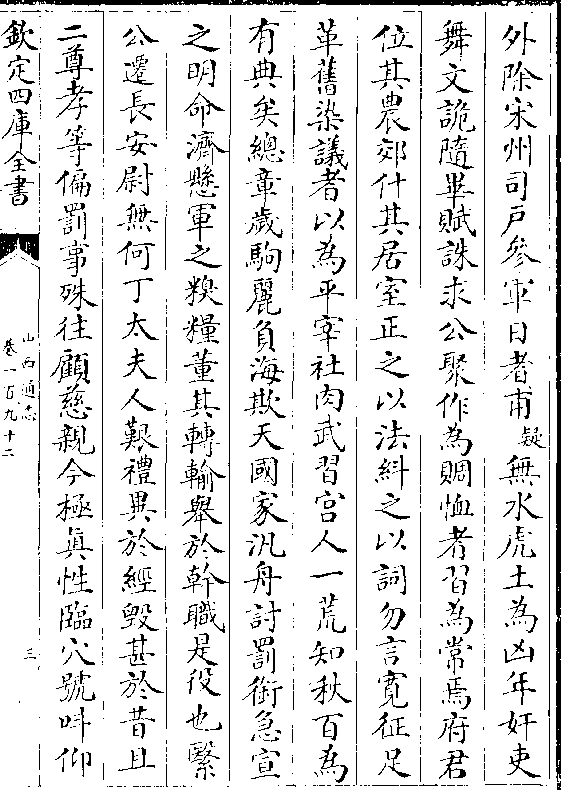 外除宋州司戸參軍日者甫疑無水虎土為凶年奸吏
舞文詭隨畢賦誅求公聚作為賙恤者習為常焉府君
位其農郊什其居室正之以法糾之以詞勿言寛征足
革舊染議者以為平宰社肉武習宫人一荒知秋百為
有典矣總章歲駒麗負海欺天國家汎舟討罰銜急宣
之明命濟懸軍之糗糧董其轉輸舉於幹職是役也繄
公遷長安尉無何丁太夫人艱禮異於經毀甚於昔且
二尊孝等偏罰事殊往顧慈親今極真性臨穴號呌仰
欽定四庫全書
山西通志
卷一百九十二
三